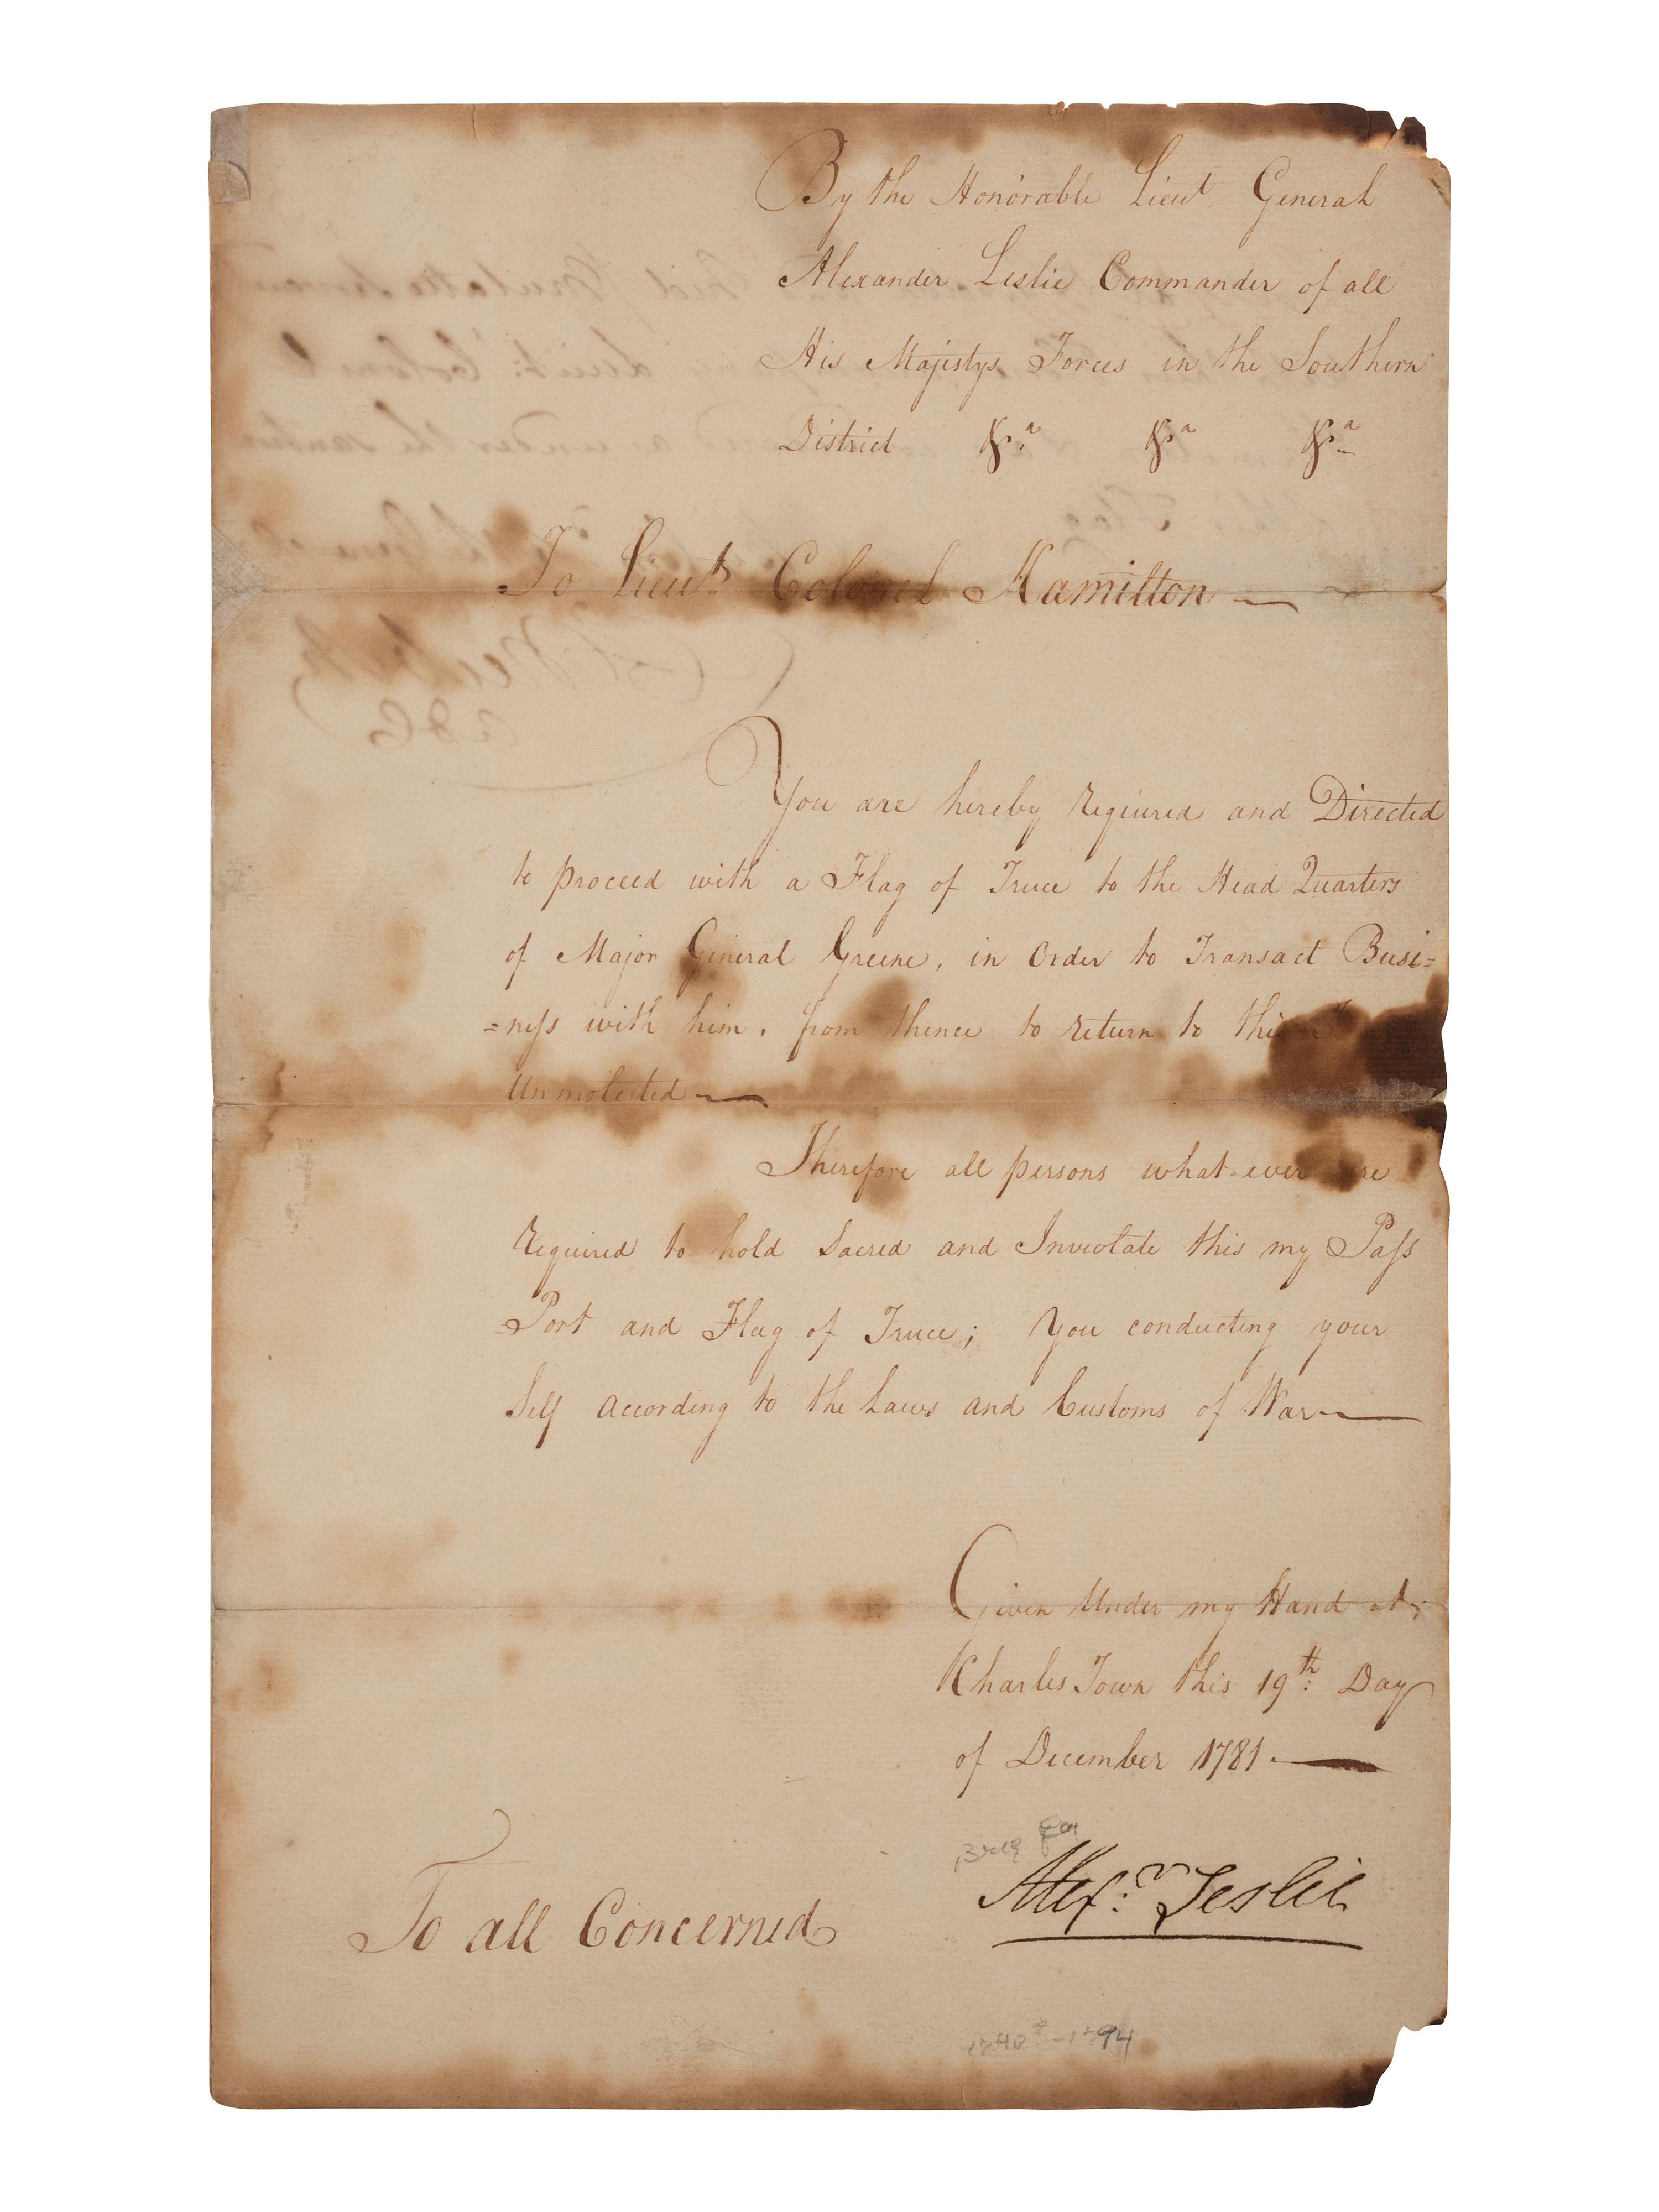 By the Honorable Lieut General
Alexander Leslie Commander of all
His Majestys Forces in the Southern
District &ca &ca &ca
To Lieut Colonel Hamilton
You are hereby required and Directed
to proceed with a Flag of Truce to the Head Quarters
of Major General Greene, in Order to Transact Busi=
=ness with him, from thence to return to this
Unmolested
Therefore all persons what-ever are
required to hold Sacred and Inviolate this my Pass
=Port and Flag of Truce; You conducting your
Self according to the Laws and Customs of War
Given Under my Hand at
Charles Town this 19th: Day
of December 1781.
Brig Gen
Alexr: Leslie
To all Concerned
1740-1794